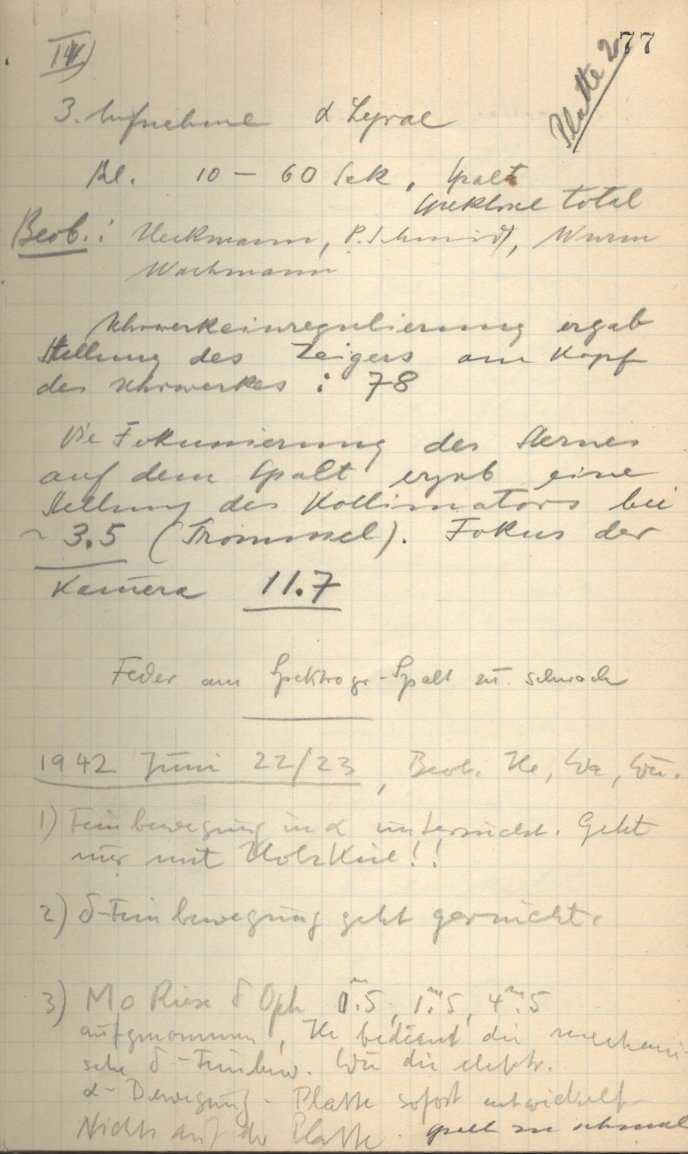 77
Platte 2
IV)
3. Aufnahme α Lyrae
Bel. 10 – 60 Sek, Spalt
total
Beob.: Heckmann, P. Schmidt, Wurm
Wachmann
Uhrwerkeinregulierung ergab
Stellung des Zeigers am Kopf
des Uhrwerkes : 78
Die Fokussierung des Sternes
auf dem Spalt ergab eine
Stellung des Kollimators bei
~ 3.5 (Trommel). Fokus der
Kamera 11.7
Feder am Spektrogr-Spalt zu schwach
1942 Juni 22/23, Beob. He, Wa, Wu.
1) Feinbewegung in α untersucht. Geht
nur mit Holzkeil!!
2) δ-Feinbewegung geht garnicht.
3) M0 Riese δ Oph 0ᵐ.5, 1ᵐ.5, 4ᵐ.5
aufgenommen, He bedient die mechani-
sche δ-Feinbew. Wu die elektr.
α-Bewegung. Platte sofort entwickelt
Nichts auf der Platte. Spalt zu schmal